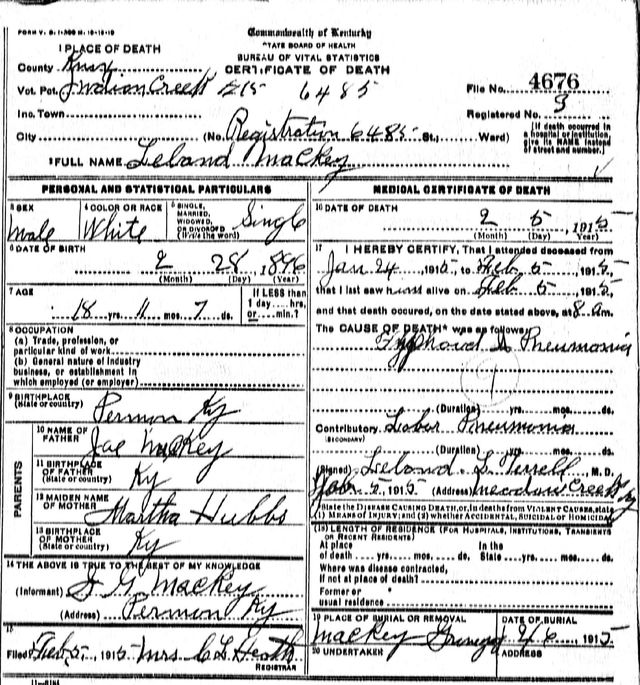 Commonwealth of Kentucky
STATE BOARD OF HEALTH
BUREAU OF VITAL STATISTICS
CERTIFICATE OF DEATH
1 PLACE OF DEATH
County Knox
Vot. Pct. Indian Creek 215 6485
File No. 4676
Inc. Town
Registered No. 3
City (No. Registration 6485 St., Ward)
[If death occurred in a hospital or institution, give its NAME instead of street and number.]
2 FULL NAME Leland Mackey
PERSONAL AND STATISTICAL PARTICULARS
3 SEX Male
4 COLOR OR RACE White
5 SINGLE, MARRIED, WIDOWED OR DIVORCED (Write the word) Single
6 DATE OF BIRTH 2 28 1896
(Month) (Day) (Year)
7 AGE 18 yrs. 11 mos. 7 ds.
If LESS than 1 day....hrs. or....min.?
8 OCCUPATION
(a) Trade, profession, or
particular kind of work
(b) General nature of industry
business, or establishment in
which employed (or employer)
9 BIRTHPLACE
(State or country) Permon Ky
PARENTS
10 NAME OF FATHER Jae Mackey
11 BIRTHPLACE OF FATHER
(State or country) Ky
12 MAIDEN NAME OF MOTHER Martha Hubbs
13 BIRTHPLACE OF MOTHER
(State or country) Ky
14 THE ABOVE IS TRUE TO THE BEST OF MY KNOWLEDGE
(Informant) J G Mackey
(Address) Permon Ky
15
Filed Feb 5, 1915 Mrs C L Heath
REGISTRAR
MEDICAL CERTIFICATE OF DEATH
16 DATE OF DEATH
2 5 1915
(Month) (Day) (Year)
17 I HEREBY CERTIFY, That I attended deceased from
Jan 24 1915, to Feb 5 1915,
that I last saw him alive on Feb 5, 1915,
and that death occured, on the date stated above, at 8 am.
The CAUSE OF DEATH* was as follows:
Typhoid Pneumonia
(Duration) yrs. mos. ds.
Contributory Lobar Pneumonia
(SECONDARY)
(Duration) yrs. mos. ds.
(Signed) Leland L Terrell, M. D.
5, 1915 (Address) Meadow Creek Ky
*State the DISEASE CAUSING DEATH, or, in deaths from VIOLENT CAUSES, state
(1) MEANS OF INJURY; and (2) whether ACCIDENTAL, SUICIDAL or HOMICIDAL
18 LENGTH OF RESIDENCE (FOR HOSPITALS, INSTITUTIONS, TRANSIENTS
OR RECENT RESIDENTS)
At place In the
of death yrs. mos. ds. State yrs. mos. ds.
Where was disease contracted,
if not at place of death?
Former or
usual residence
19 PLACE OF BURIAL OR REMOVAL
Mackey
DATE OF BURIAL
2 6, 1915
20 UNDERTAKER
ADDRESS